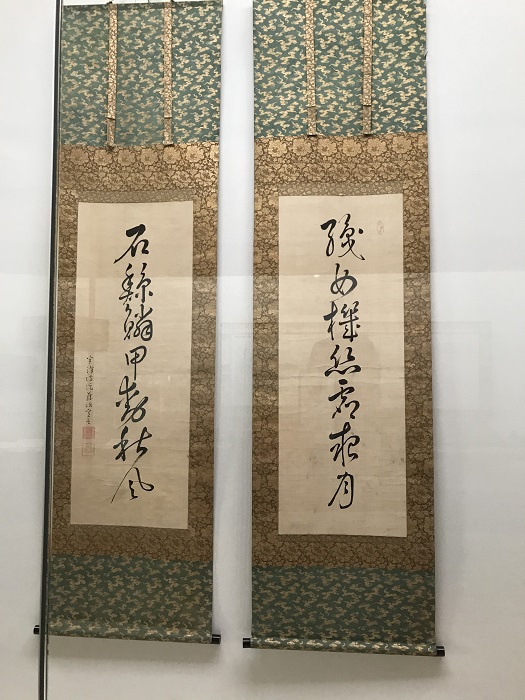 織女機絲虛夜月
石鯨鱗甲動秋風